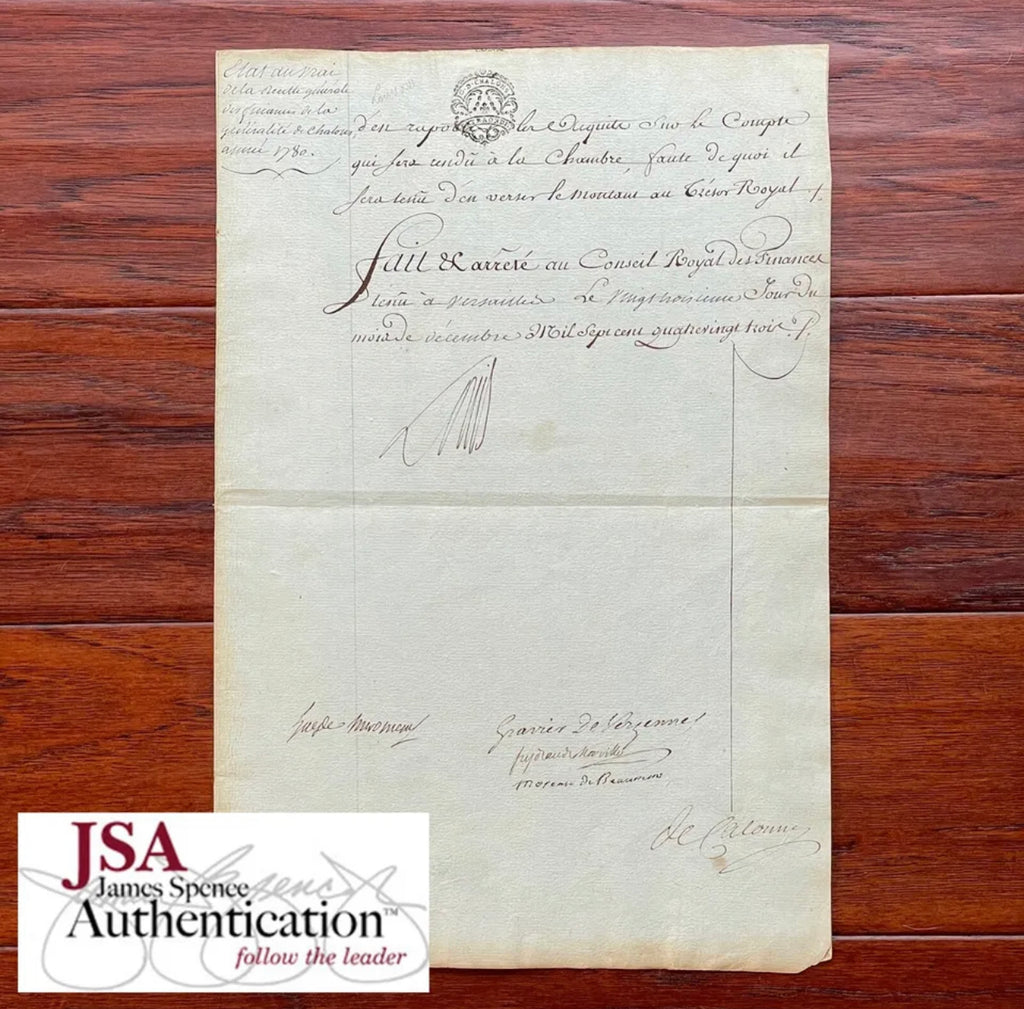 Etat au vrai
de la Recette générale
des finances de la
généralité de Chalons
année 1780.
D. CHALONS
d'en raporter Acquits sur le Compte
qui sera rendû à la Chambre faute de quoi il
sera tenû d'en verser le montant au Trésor Royal ./.
Fait & arrêté au Conseil Royal des Finances
tenû à Versailles Le vingt troisieme Jour du
mois de décembre Mil Sept cent quatrevingt trois ./.
Louis
hue de Miromenil
Gravier De Vergennes
Moreau de Beaumont
De Calonne
JSA
James Spence
Authentication™
follow the leader